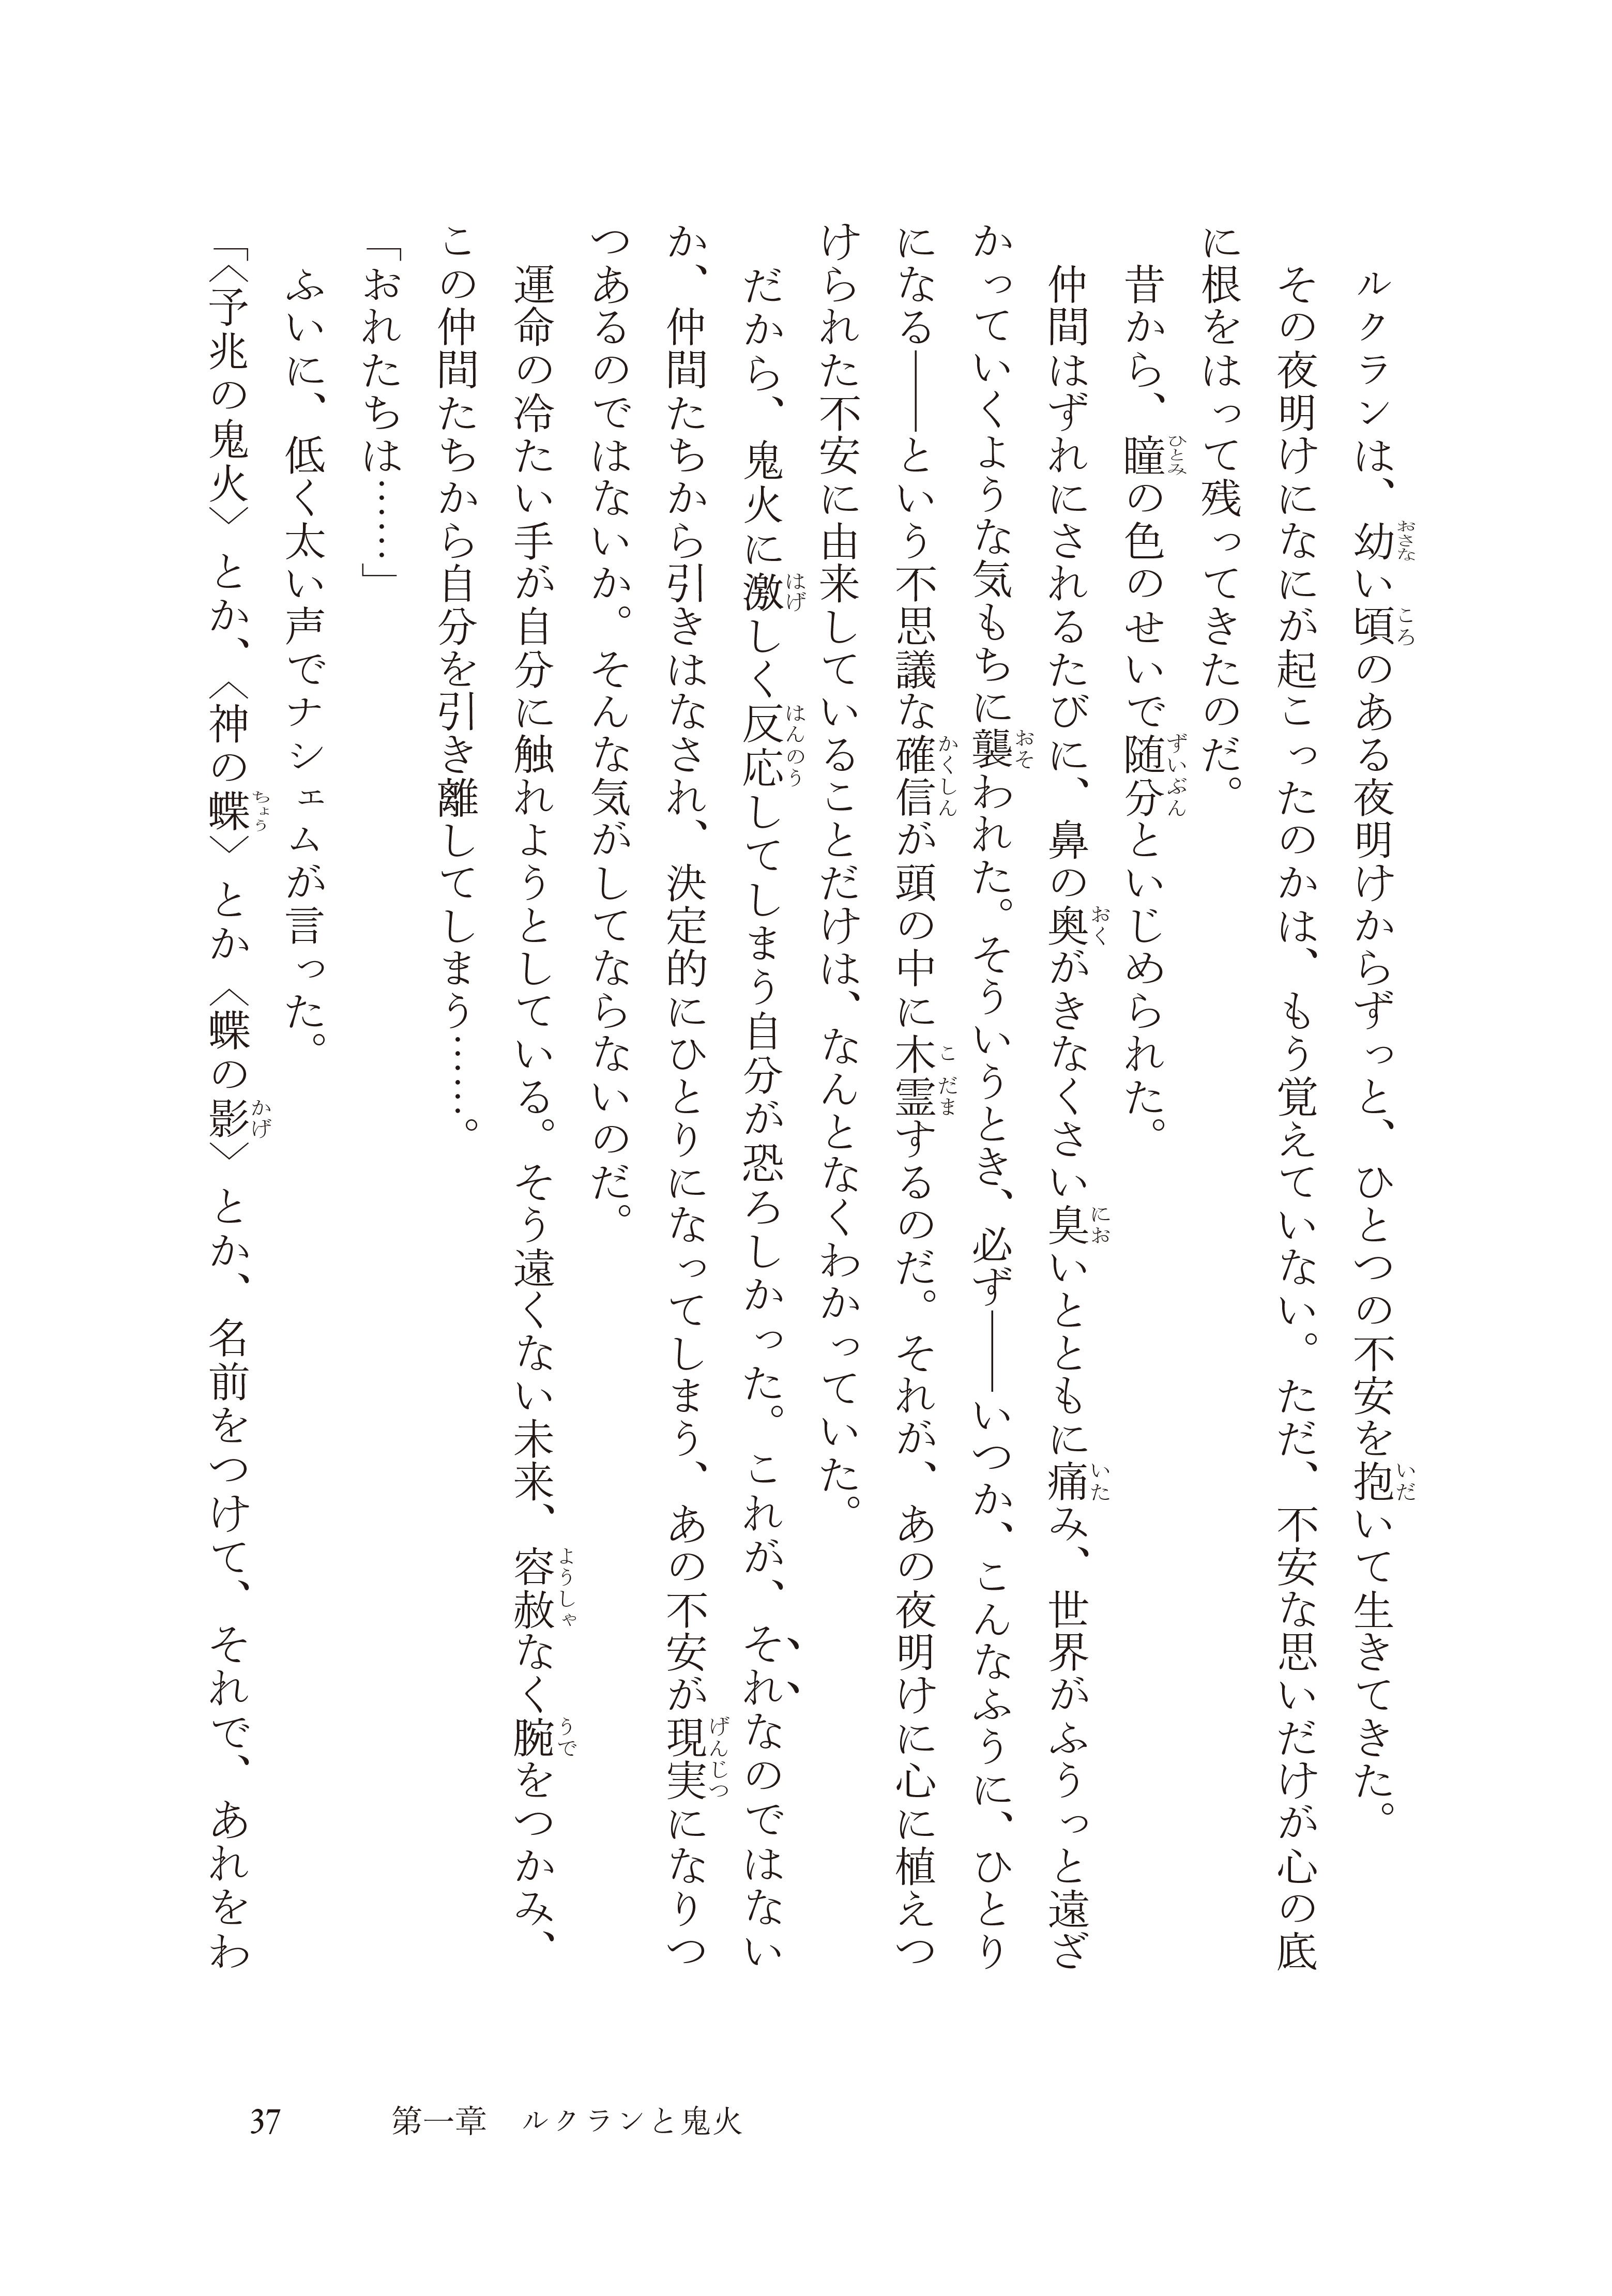 ルクランは、幼い頃のある夜明けからずっと、ひとつの不安を抱いて生きてきた。
その夜明けになにが起こったのかは、もう覚えていない。ただ、不安な思いだけが心の底
に根をはって残ってきたのだ。
昔から、瞳の色のせいで随分といじめられた。
仲間はずれにされるたびに、鼻の奥がきなくさい臭いとともに痛み、世界がふうっと遠ざ
かっていくような気もちに襲われた。そういうとき、必ず――いつか、こんなふうに、ひとり
になる――という不思議な確信が頭の中に木霊するのだ。それが、あの夜明けに心に植えつ
けられた不安に由来していることだけは、なんとなくわかっていた。
だから、鬼火に激しく反応してしまう自分が恐ろしかった。これが、それなのではない
か、仲間たちから引きはなされ、決定的にひとりになってしまう、あの不安が現実になりつ
つあるのではないか。そんな気がしてならないのだ。
運命の冷たい手が自分に触れようとしている。そう遠くない未来、容赦なく腕をつかみ、
この仲間たちから自分を引き離してしまう……。
「おれたちは……」
ふいに、低く太い声でナシェムが言った。
「〈予兆の鬼火〉とか、〈神の蝶〉とか〈蝶の影〉とか、名前をつけて、それで、あれをわ
37 第一章 ルクランと鬼火